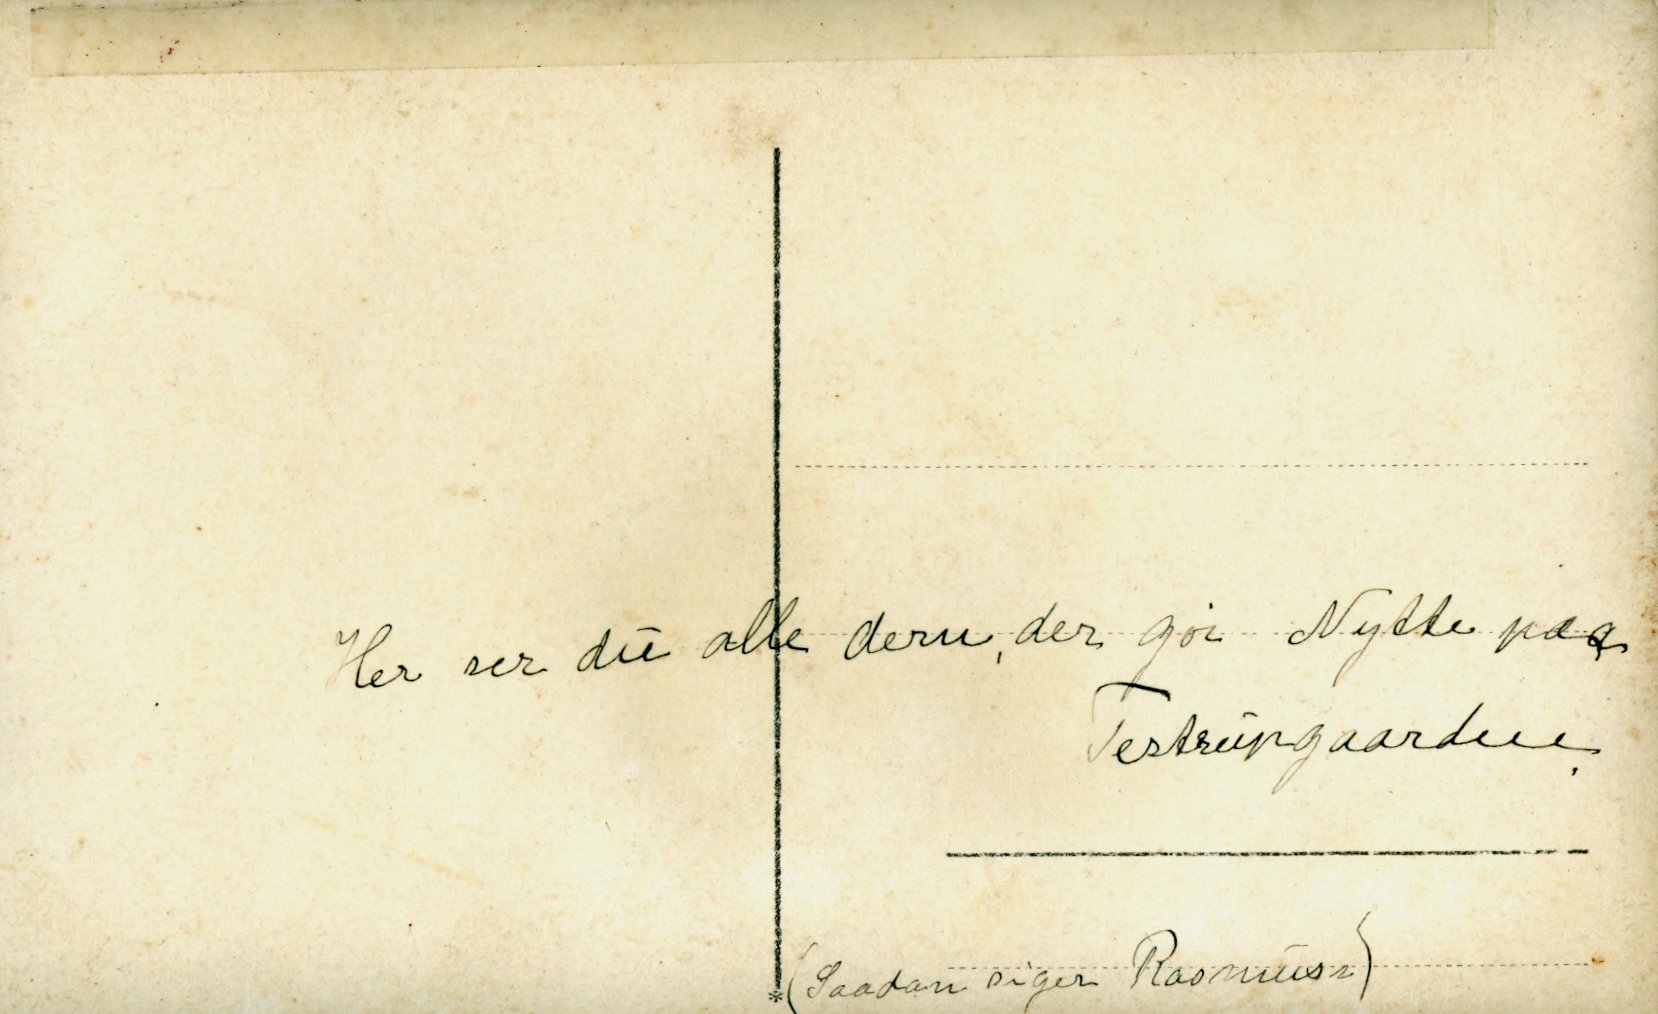 Her ser du alle dem, der gör Nytte paa
Testrupgaarden.
(Saadan siger Rasmus)